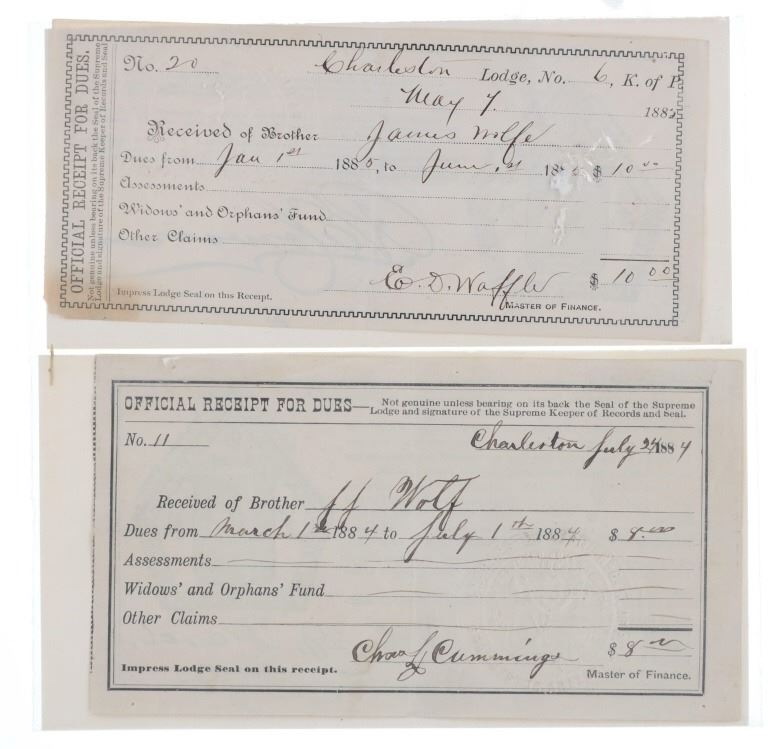 OFFICIAL RECEIPT FOR DUES.
Not genuine unless bearing on its back the Seal of the Supreme
Lodge and signature of the Supreme Keeper of Records and Seal
No. 20 Charleston Lodge, No. 6, K. of P.
May 7. 188
Received of Brother James Wolfe
Dues from Jan 1st 188 , to June 1st 18 $ 10 00
Assessments
Widows' and Orphans' Fund
Other Claims
E. D. Waffler $ 10 00
Impress Lodge Seal on this Receipt. MASTER OF FINANCE.
OFFICIAL RECEIPT FOR DUES— Not genuine unless bearing on its back the Seal of the Supreme
Lodge and signature of the Supreme Keeper of Records and Seal.
No. 11 Charleston July 24 1884
Received of Brother JJ Wolf
Dues from March 1st 1884 to July 1th 1884 $ 8.00
Assessments
Widows' and Orphans' Fund
Other Claims
Chas L Cummings $ 8 00
Impress Lodge Seal on this receipt. Master of Finance.